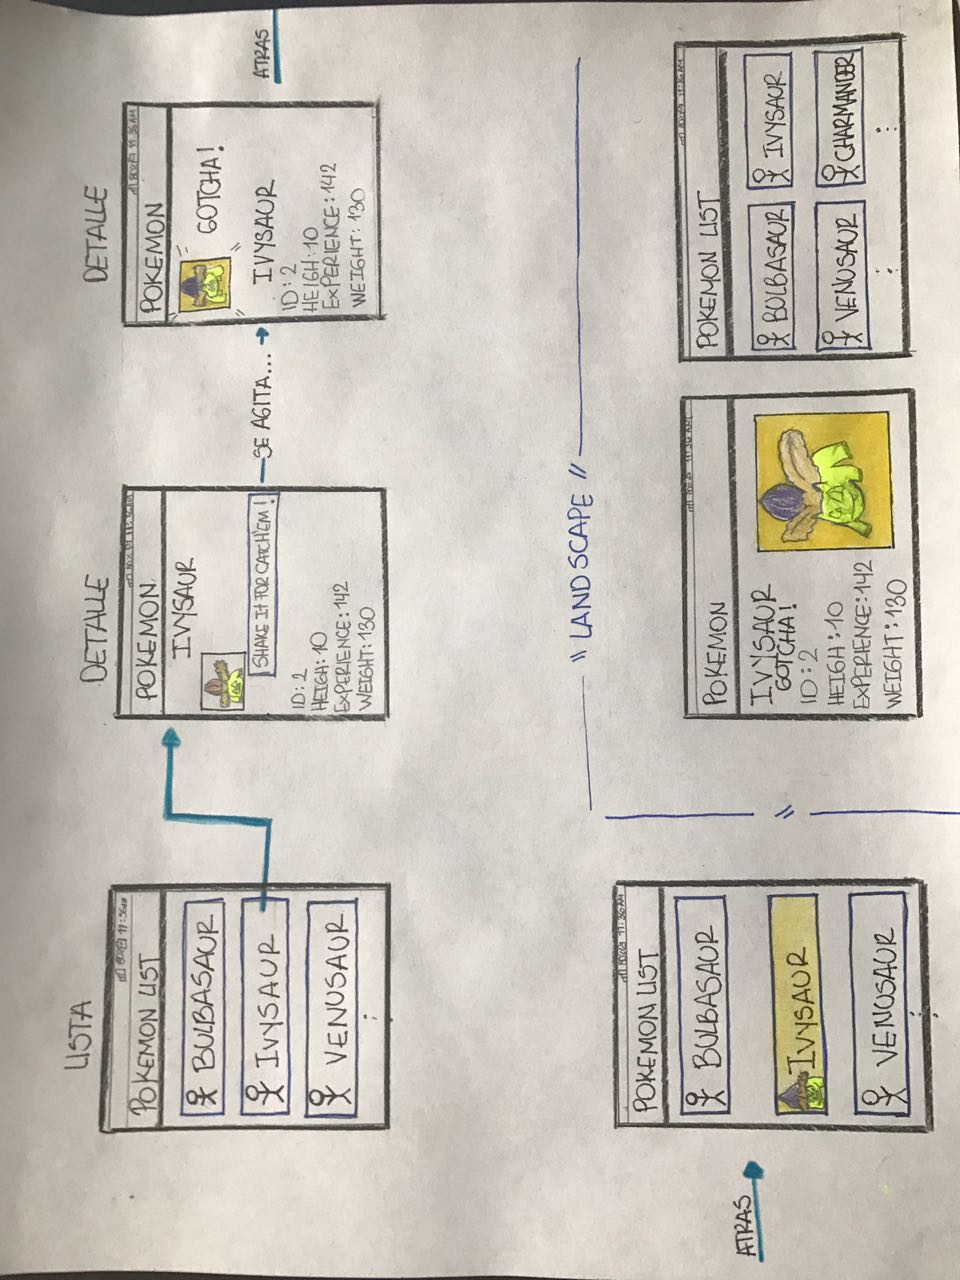 LISTA
11:36AM
POKEMON LIST
BULBASAUR
IVYSAUR
VENUSAUR
DETALLE
POKEMON
IVYSAUR
SHAKE IT FOR CATCH'EM!
ID: 2
HEIGH: 10
EXPERIENCE: 142
WEIGHT: 130
SE AGITA...
DETALLE
11:36 AM
POKEMON
GOTCHA!
IVYSAUR
ID: 2
HEIGH: 10
EXPERIENCE: 142
WEIGHT: 130
ATRAS
ATRAS
11:36AM
POKEMON LIST
BULBASAUR
IVYSAUR
VENUSAUR
"LANDSCAPE"
11:36 AM
POKEMON
IVYSAUR
GOTCHA!
ID: 2
HEIGH: 10
EXPERIENCE: 142
WEIGHT: 130
11:36 AM
POKEMON LIST
BULBASAUR IVYSAUR
VENUSAUR CHARMANDER